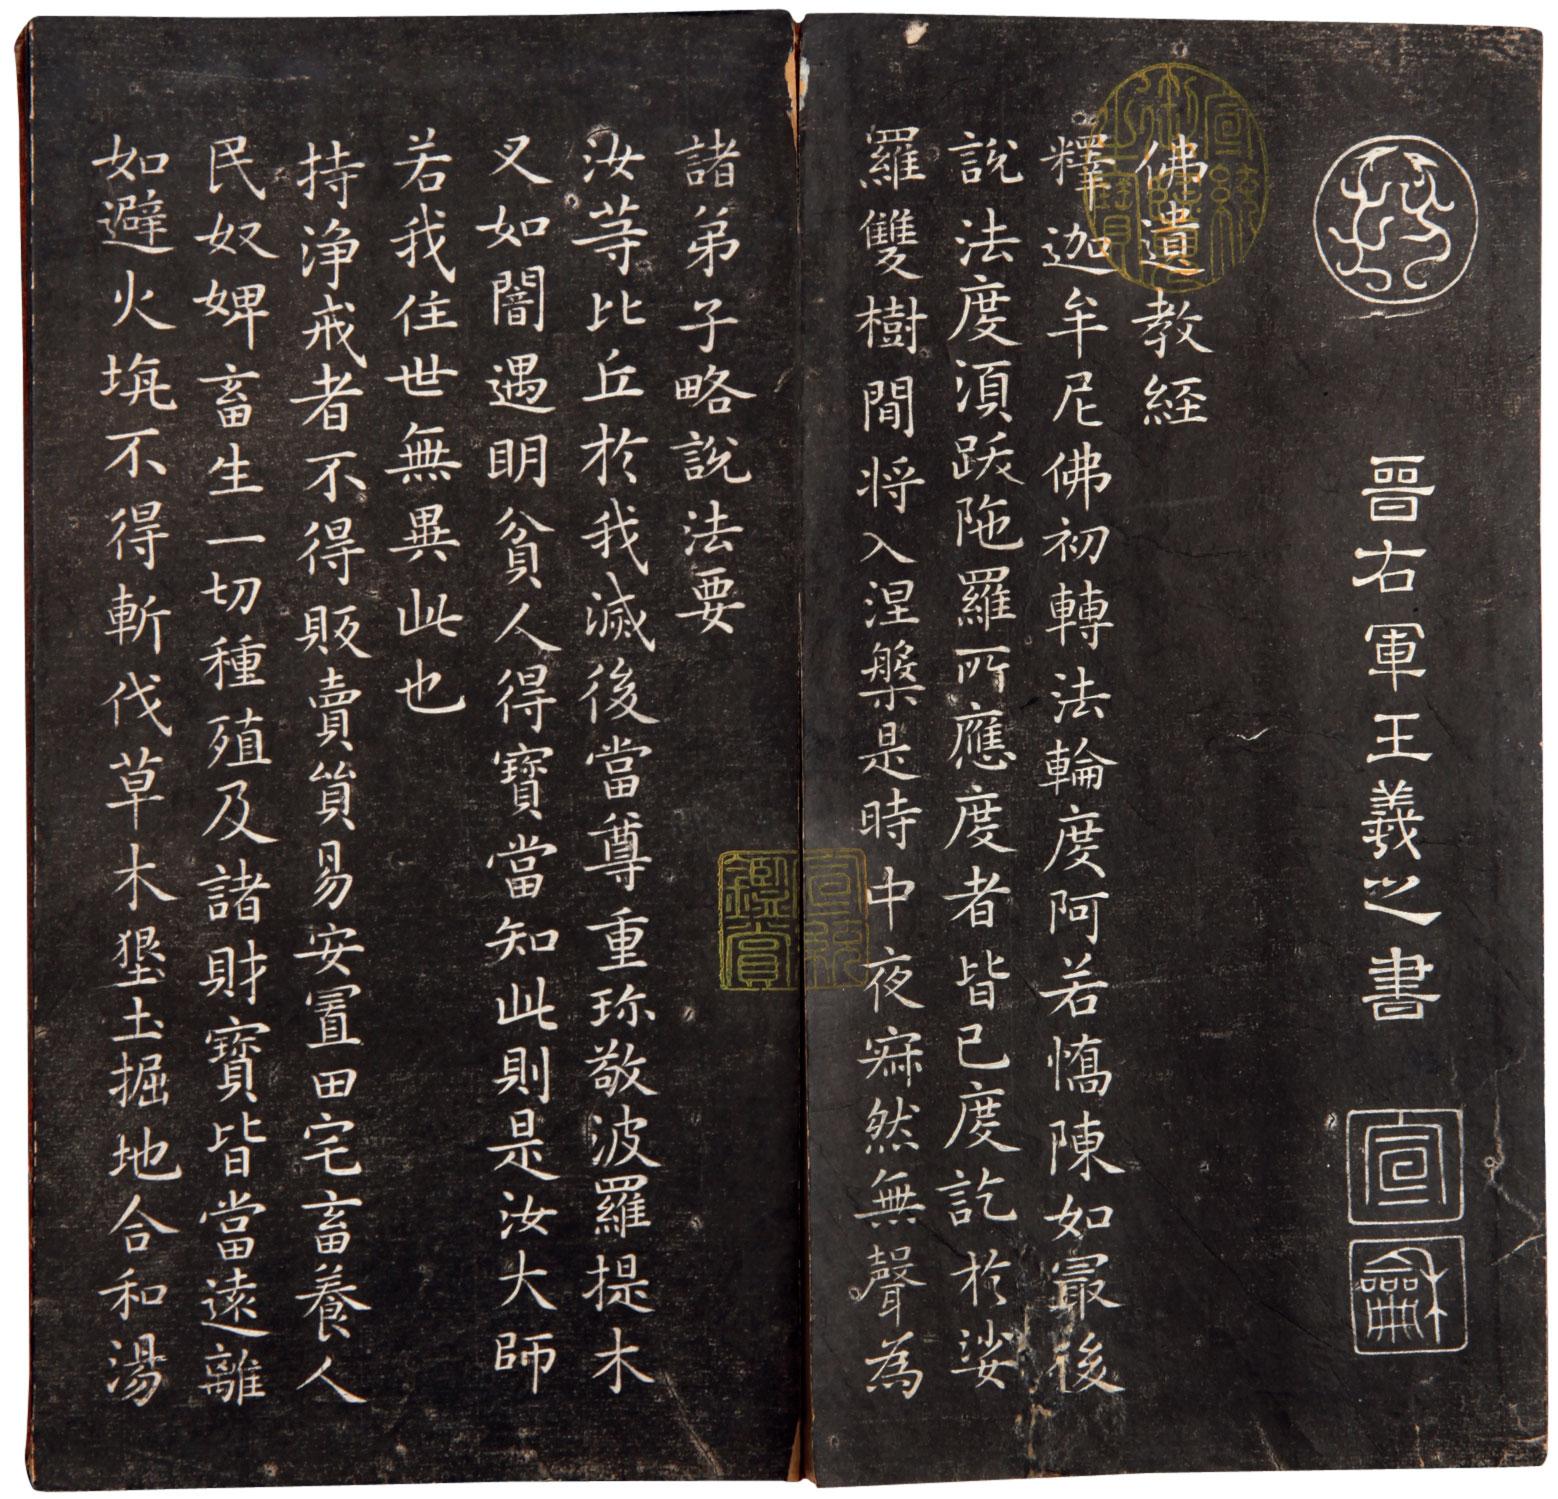 晉右軍王羲之書
宣
龢
佛遺教経
釋迦牟尼佛初轉法輪度阿若憍陳如冣後
說法度湏跋陁羅所應度者皆已度訖於娑
羅雙樹間将入涅槃是時中夜寂然無聲為
諸弟子略說法要
汝䓁比丘於我滅後當尊重珎敬波羅提木
叉如闇遇明貧人得寶當知此則是汝大師
若我住世無異此也
持淨戒者不得販賣貿易安置田宅畜養人
民奴婢畜生一切種殖及諸財寶皆當遠離
如避火坑不得斬伐草木墾土掘地合和湯
宣統
鑑賞
宣統御覽之寶